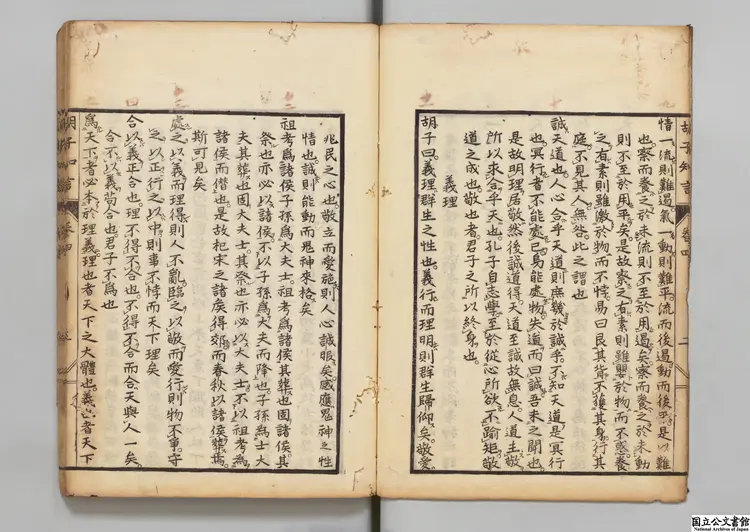 胡子知言 卷四
情一流則難遏氣一動則難平流而後遏動而後平是以難
也察而養之於未流則不至於用遏矣察而養之於未動
則不至於用平矣是故察之有素則雖嬰於物而不惑養
之有素則雖激於物而不悖易曰艮其背不獲其身行其
庭不見其人無咎此之謂也
誠天道也人心合乎天道則庶幾於誠乎不知天道是冥行
也冥行者不能處己烏能處物失道而曰誠吾未之聞也
是故明理居敬然後誠道得天道至誠故無息人道主敬
所以求合乎天也孔子自志學至於從心所欲不踰矩敬
道之成也敬也者君子之所以終身也
義理
胡子曰義理群生之性也義行而理明則群生歸仰矣敬愛
兆民之心也敬立而愛施則人心誠服矣感應鬼神之性
情也誠則能動而鬼神來格矣
祖考爲諸侯子孫爲大夫士祖考爲諸侯其葬也固諸侯其
祭也亦必以諸侯不以子孫爲大夫而降也子孫爲士大
夫其葬也固大夫士其祭也亦必以大夫士不以祖考爲
諸侯而僭也是故杞宋之諸侯得郊而春秋以諸侯葬焉
斯可見矣
處之以義而理得則人不亂臨之以敬而愛行則物不爭守
之以正行之以中則事不悖而天下理矣
合以義正合也理不得不合也不得不合而合天與人一矣
合不以義苟合也君子不爲也
爲天下者必本於理義理也者天下之大體也義也者天下
胡子知言 卷四
国立公文書館
National Archives of Japan